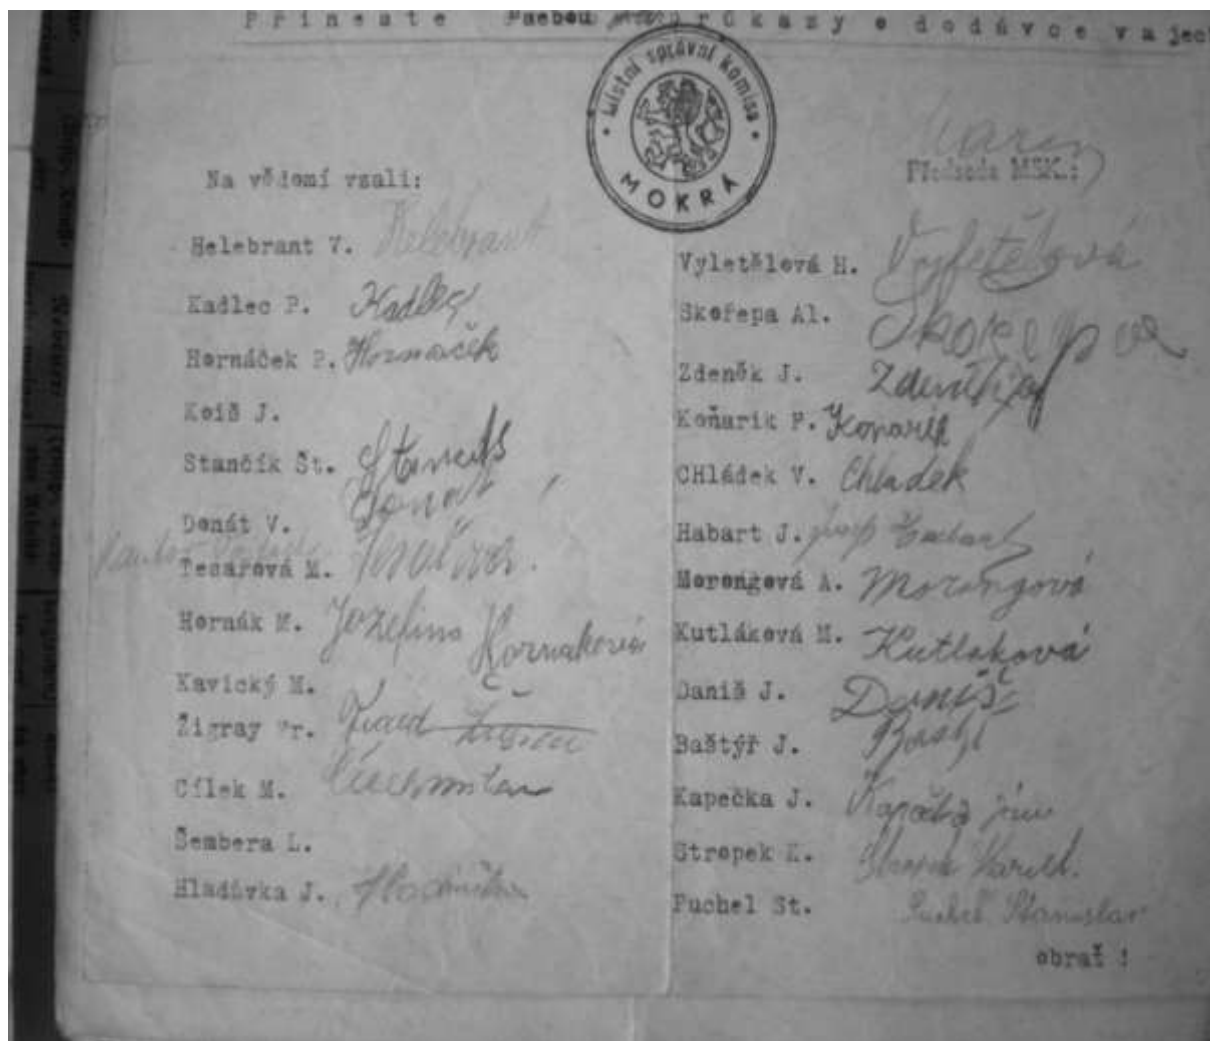 Přineste sebou průkazy o dodávce vajec
Místní správní komise
MOKRÁ
Předseda MSK.:
Na vědomí vzali:
Helebrant V. Helebrant
Kadlec P. Kadlec
Hornáček P. Hornaček
Koiš J.
Stančík Št.
Donát V. Donat
Tesařová M.
Hornák M. Jozefina Hornakova
Kavický M.
Žigray Fr.
Cílek M.
Šembera L.
Hladůvka J. Hladůvka
Vyletělová H. Vyletělová
Skořepa Al. Skořepa
Zdeněk J. Zdeněk
Koňarik F. Konařik
CHládek V. Chladek
Habart J. Josef Habart
Morongová A. Morongová
Kutláková M. Kutlaková
Daniš J. Daniš
Baštýř J.
Kapečka J. Kapečka Ján
Stropek K. Karel
Puchel St. Puchel Stanislav
obrať !